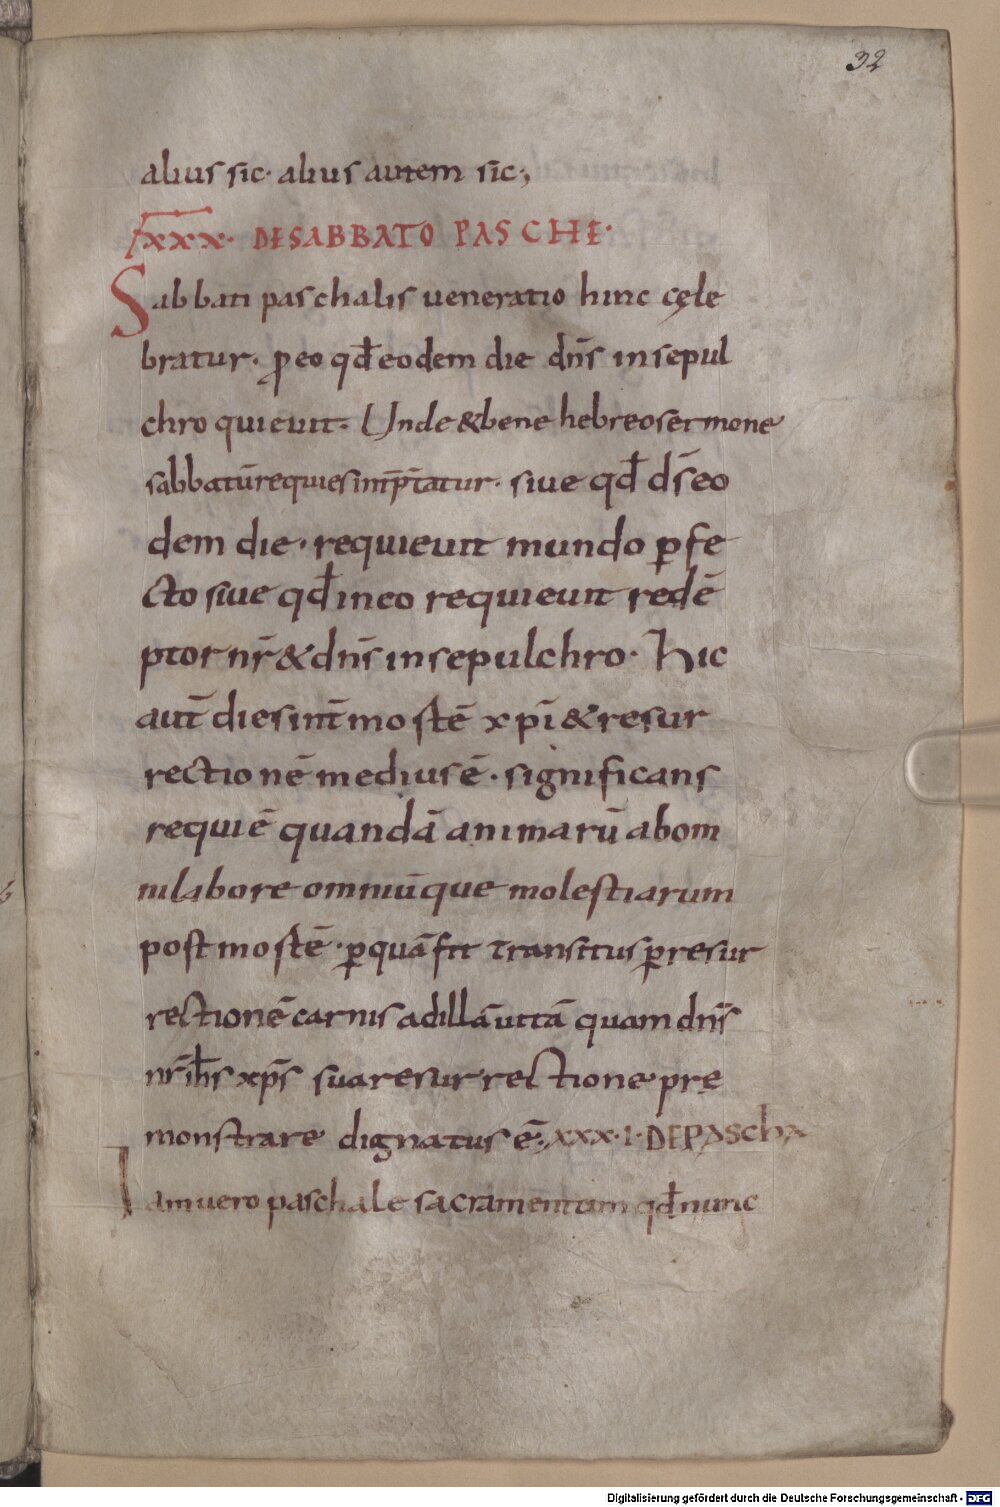 32
alius sic· alius autem sic;
XXX· DE SABBATO PASCHE·
Sabbati paschalis ueneratio hinc cęle
bratur· ꝓ eo qđ eodem die dn̄s in sepul
chro quieuit· Unde & bene hebreo sermone
sabbatū requies int̄p̄tatur· siue qđ d̄s eo
dem die· requieuit mundo ꝑfe
cto siue qđ in eo requieuit redē
ptor nr̄ & dn̄s in sepulchro· Hic
aut̄ dies int̄ mortē xp̄i & resur
rectionē medius ē· significans
requiē quandā animarū ab om
ni labore omniūque molestiarum
post mortē· ꝑ quā fit transitus ꝑ resur
rectionē carnis ad illā uitā quam dn̄s
nr̄ ih̄s xp̄s sua resurrectione pre̜
monstrare dignatus ē· XXX·I· DE PASCHA
Iam uero paschale sacramentum qđ nunc
Digitalisierung gefördert durch die Deutsche Forschungsgemeinschaft - DFG